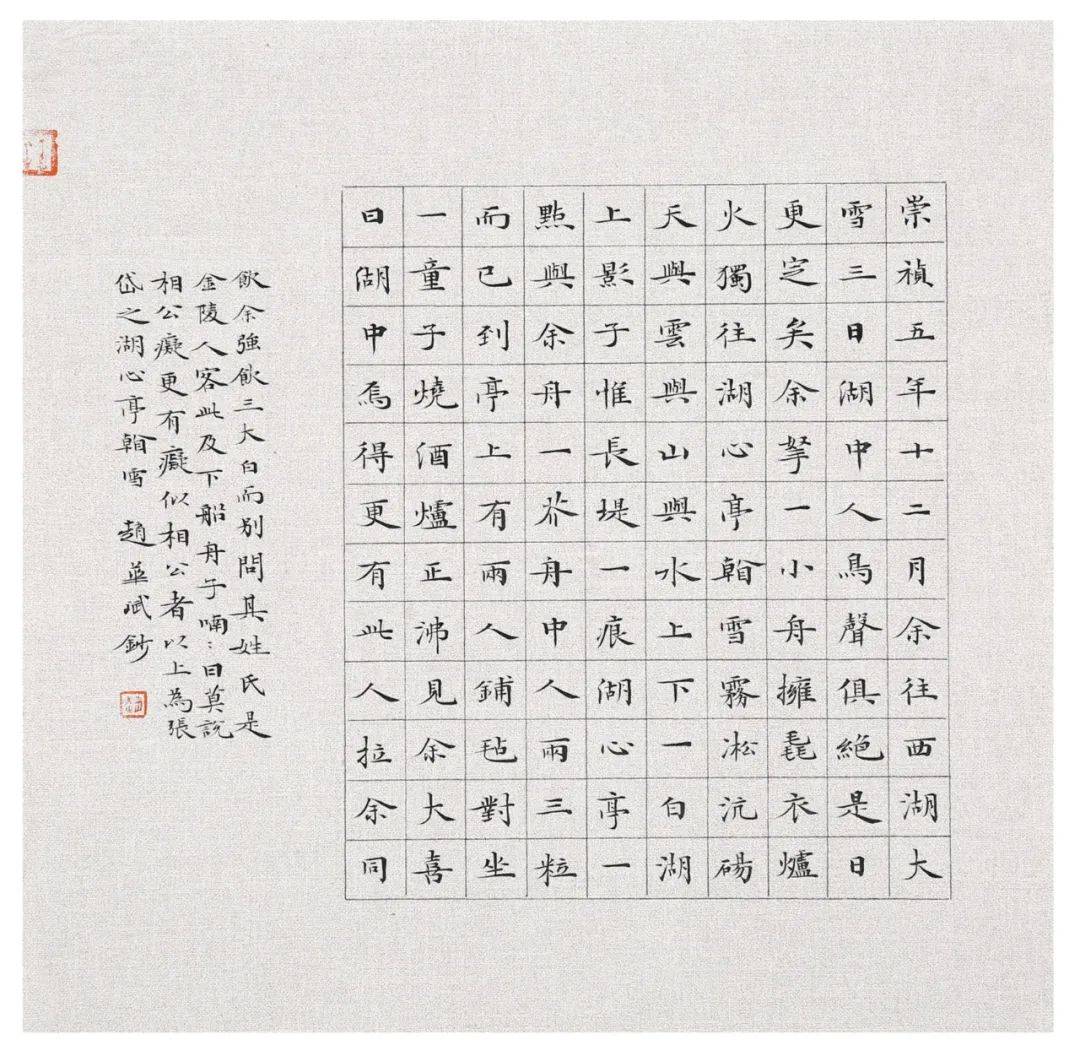 崇禎五年十二月余往西湖大
雪三日湖中人鳥聲俱絕是日
更定矣余拏一小舟擁毳衣爐
火獨往湖心亭看雪霧凇沆碭
天與雲與山與水上下一白湖
上影子惟長堤一痕湖心亭一
點與余舟一芥舟中人兩三粒
而已到亭上有兩人鋪毡對坐
一童子燒酒爐正沸見余大喜
曰湖中焉得更有此人拉余同
飲余強飲三大白而別問其姓氏是
金陵人客此及下船舟子喃〻曰莫說
相公癡更有癡似相公者以上為張
岱之湖心亭看雪 趙華斌鈔